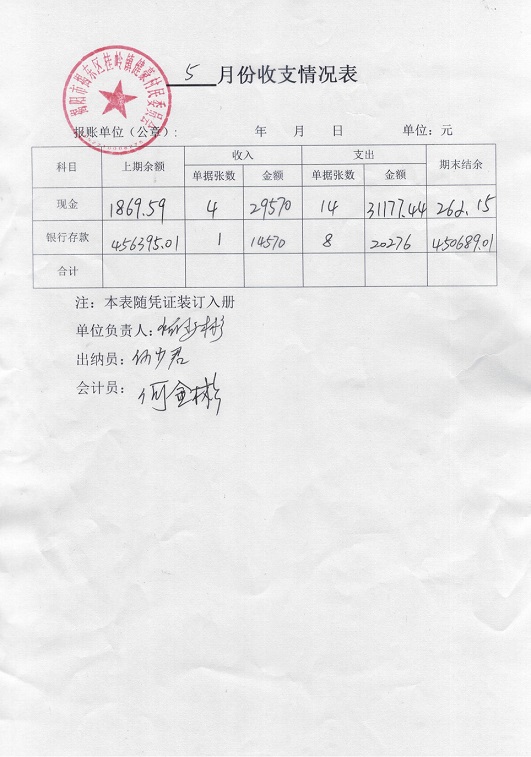 5 月份收支情况表
揭阳市揭东区桂岭镇健豪村民委员会
报账单位（公章）: 年 月 日 单位: 元
科目 上期余额 收入 支出 期末结余
单据张数 金额 单据张数 金额
现金 1869.59 4 29570 14 31177.44 262.15
银行存款 456395.01 1 14570 8 20276 450689.01
合计
注: 本表随凭证装订入册
单位负责人:
出纳员: 何少君
会计员: 何金彬